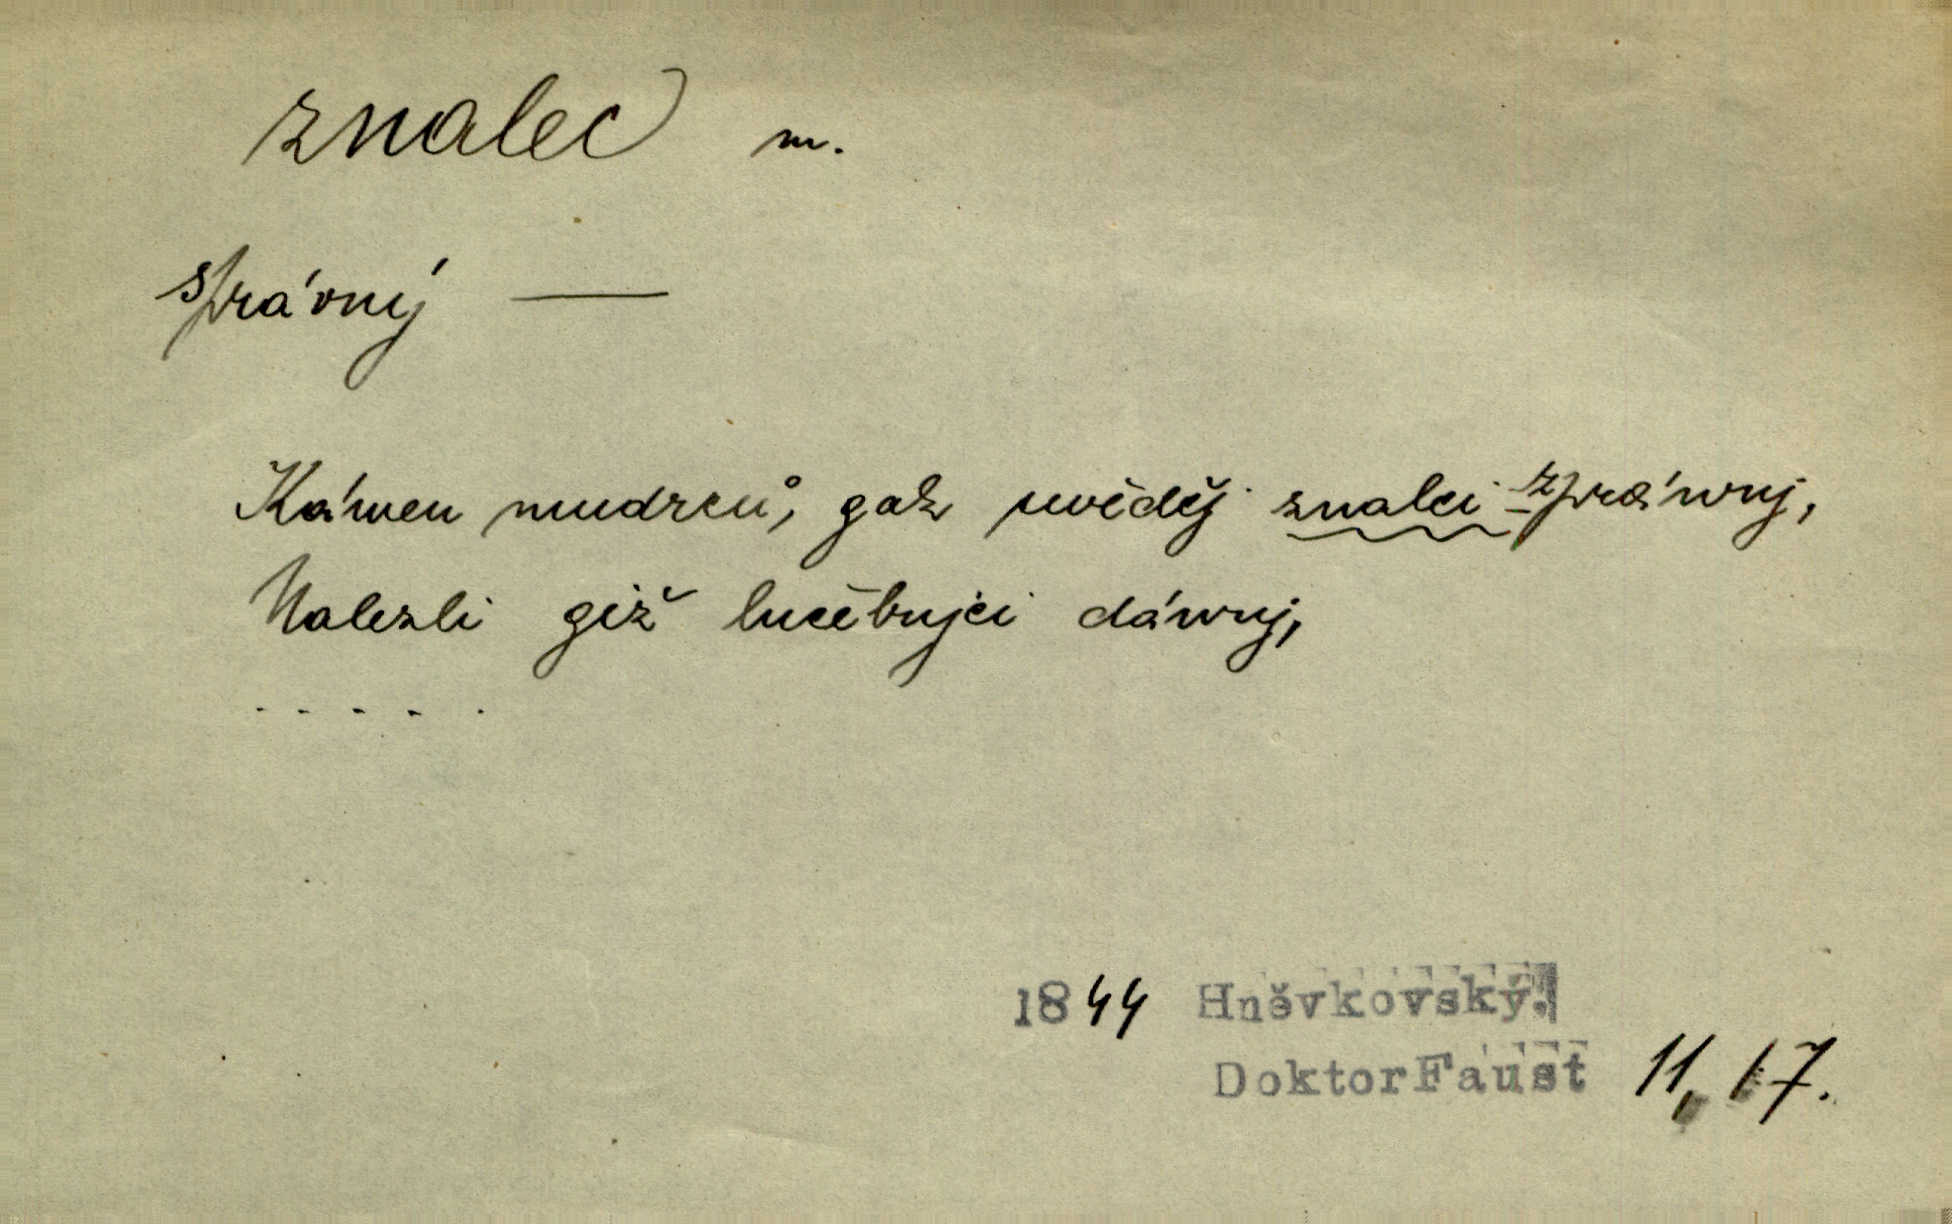 znalec m.
správný —
Kámen mudrců, gak uvěděj znalci zpráwnj,
Nalezli giž lučebnjci dáwnj,
. . . . .
1844 Hněvkovský.
Doktor Faust 11, 17.